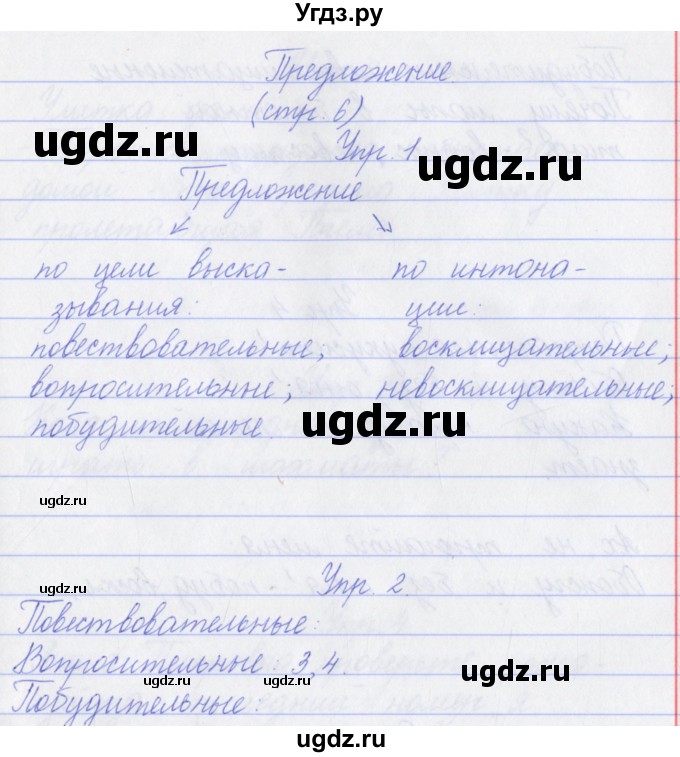 Угдз.ру
Предложение.
(стр. 6)
ugdz.ru
Упр. 1
ugdz.ru
Предложение
по цели выска- по интона-
зывания: ции:
повествовательные; восклицательные;
вопросительные; невосклицательные;
побудительные.
ugdz.ru
ugdz.ru
ugdz.ru
Упр. 2.
Повествовательные:
Вопросительные: 3,4.
ugdz.ru
ugdz.ru
Побудительные:
ugdz.ru